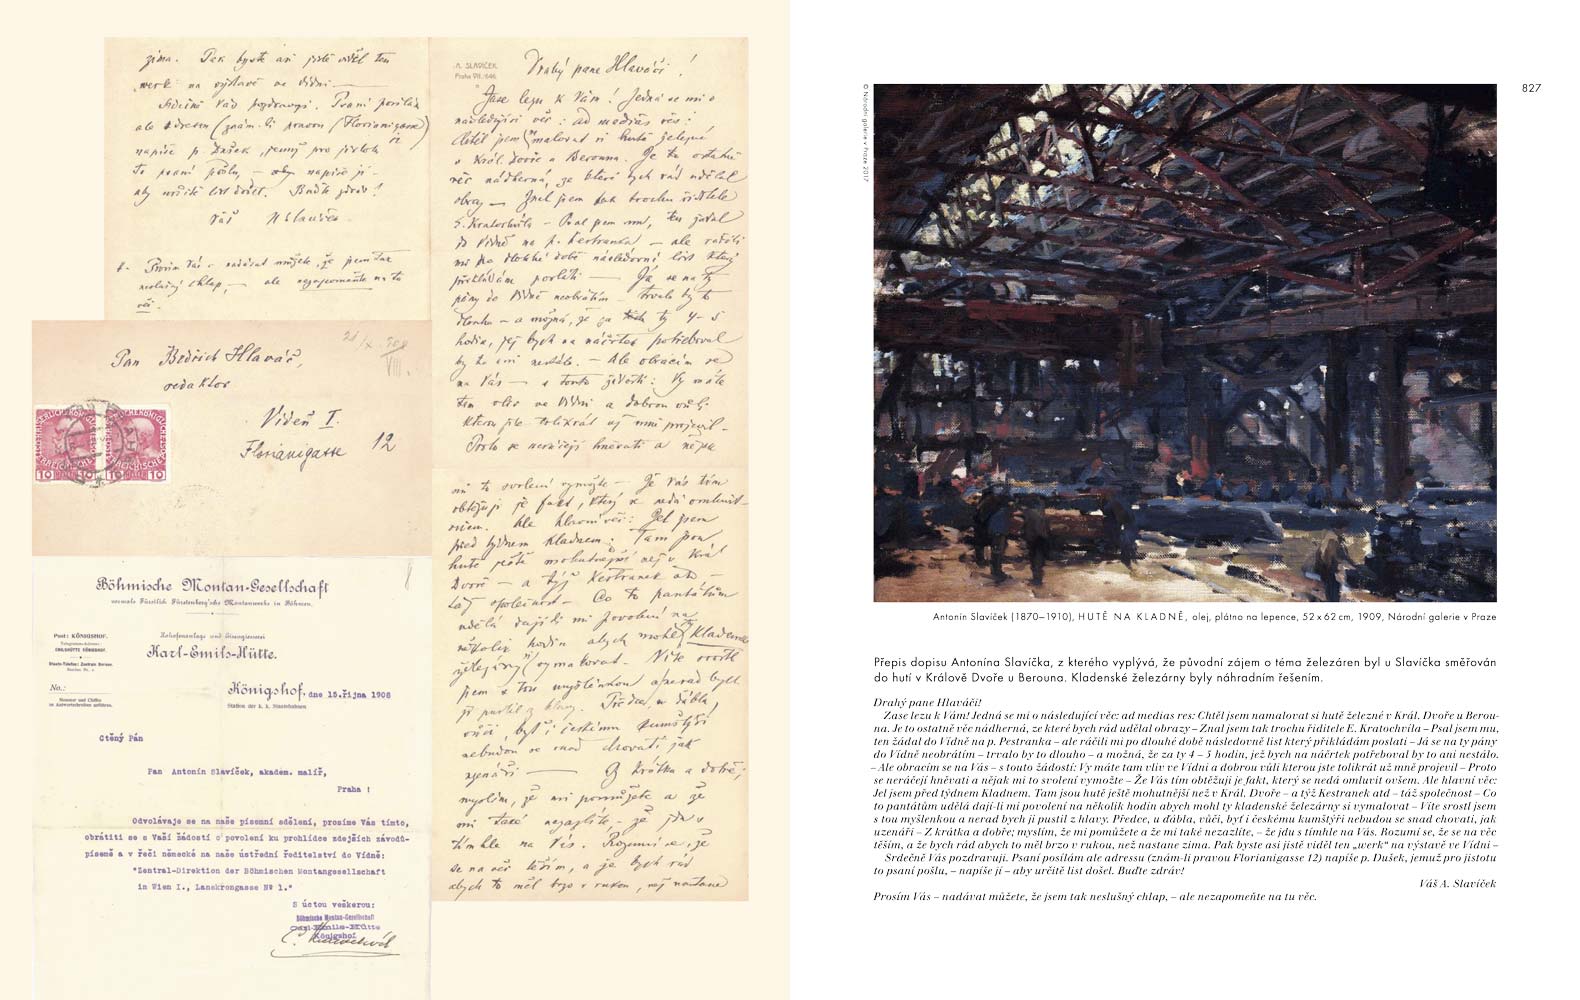 zima. Pak byste asi jistě viděl ten
„werk" na výstavě ve Vídni —
Srdečně Vás pozdravuji. Psaní posílám
ale adressu (znám-li pravou (Florianigasse 12)
napíše p. Dušek, jemuž pro jistotu
to psaní pošlu, – napíše jí –
aby určitě list došel. Buďte zdráv!
Váš ASlavíček
Prosím Vás – nadávat můžete, že jsem tak
neslušný chlap, – ale nezapomeňte na tu
věc.
Pan Bedřich Hlaváč,
redaktor
Videň I.
Florianigasse 12
10
10
Böhmische Montan-Gesellschaft
vormals Fürstlich Fürstenberg'sche Montanwerke in Böhmen.
Post: KÖNIGSHOF.
Telegramm-Adresse:
EMILSHÜTTE KÖNIGSHOF.
Staats-Telefon: Zentrum Beraun.
Hohofenanlage und Eisengiesserei
Karl-Emils-Hütte.
No.:
Nummer und Chiffre
in Antwortschreiben anführen.
Königshof, dne 15.října 1908
Station der k. k. Staatsbahnen
Ctěný Pán
Pan Antonín Slavíček, akadem. malíř,
Praha !
Odvolávaje se na naše písemní sdělení, prosíme Vás tímto,
obrátiti se s Vaší žádostí o povolení ku prohlídce zdejších závodů-
písemě a v řeči německé na naše ústřední ředitelství do Vídně:
"Zentral-Direktion der Böhmischen Montangesellschaft
in Wien I., Lanskrongasse № 1."
S úctou veškerou:
Böhmische Montan-Gesellschaft
Carl-Emils-Hütte
Königshof
A. SLAVÍČEK
Praha VII./646.
Drahý pane Hlaváči !
Zase lezu k Vám! Jedná se mi o
následující věc: ad medias res:
Chtěl jsem si malovat hutě železné
v Král. Dvoře u Berouna. Je to ostatně
věc nádherná, ze které bych rád udělal
obrazy — Znal jsem tak trochu ředitele
E. Kratochvíla – Psal jsem mu, ten žádal
do Vídně na p. Kestranka – ale ráčili
mi po dlouhé době následovní list který
přikládám poslati — Já se na ty
pány do Vídně neobrátím – trvalo by to
dlouho – a možná, že za ty 4–5
hodin, jež bych na náčrtek potřeboval
by to ani nestálo. – Ale obracím se
na Vás — s touto žádostí: Vy máte
tam vliv ve Vídni a dobrou vůli
kterou jste tolikrát už mně projevil –
Proto se neráčejí hněvati a nějak
mi to svolení vymožte – Že Vás tím
obtěžuji je fakt, který se nedá omluvit
ovšem. Ale hlavní věc: Jel jsem
před týdnem Kladnem. Tam jsou
hutě ještě mohutnější než v Král
Dvoře – a týž Kestranek atd –
táž společnost – Co to pantátům
udělá dají-li mi povolení na
několik hodin abych mohl ty kladenské
železárny si vymalovat – Víte srostl
jsem s tou myšlenkou a nerad bych
ji pustil z hlavy. Předce, u ďábla,
vůči, byť i českému kumštýři
nebudou se snad chovati, jak
uzenáři — Z krátka a dobře;
myslím, že mi pomůžete a že
mi také nezazlíte, – že jdu s
tímhle na Vás. Rozumí se, že
se na věc těším, a že bych rád
abych to měl brzo v rukou, než nastane
827
© Národní galerie v Praze 2017
Antonín Slavíček (1870–1910), HUTĚ NA KLADNĚ, olej, plátno na lepence, 52 x 62 cm, 1909, Národní galerie v Praze
Přepis dopisu Antonína Slavíčka, z kterého vyplývá, že původní zájem o téma železáren byl u Slavíčka směřován
do hutí v Králově Dvoře u Berouna. Kladenské železárny byly náhradním řešením.
Drahý pane Hlaváči!
Zase lezu k Vám! Jedná se mi o následující věc: ad medias res: Chtěl jsem namalovat si hutě železné v Král. Dvoře u Berou-
na. Je to ostatně věc nádherná, ze které bych rád udělal obrazy – Znal jsem tak trochu řiditele E. Kratochvíla – Psal jsem mu,
ten žádal do Vídně na p. Pestranka – ale ráčili mi po dlouhé době následovně list který přikládám poslati – Já se na ty pány
do Vídně neobrátím – trvalo by to dlouho – a možná, že za ty 4 – 5 hodin, jež bych na náčrtek potřeboval by to ani nestálo.
– Ale obracím se na Vás – s touto žádostí: Vy máte tam vliv ve Vídni a dobrou vůli kterou jste tolikrát už mně projevil – Proto
se neráčejí hněvati a nějak mi to svolení vymožte – Že Vás tím obtěžuji je fakt, který se nedá omluvit ovšem. Ale hlavní věc:
Jel jsem před týdnem Kladnem. Tam jsou hutě ještě mohutnější než v Král. Dvoře – a týž Kestranek atd – táž společnost – Co
to pantátům udělá dají-li mi povolení na několik hodin abych mohl ty kladenské železárny si vymalovat – Víte srostl jsem
s tou myšlenkou a nerad bych ji pustil z hlavy. Předce, u ďábla, vůči, byť i českému kumštýři nebudou se snad chovati, jak
uzenáři – Z krátka a dobře; myslím, že mi pomůžete a že mi také nezazlíte, – že jdu s tímhle na Vás. Rozumí se, že se na věc
těším, a že bych rád abych to měl brzo v rukou, než nastane zima. Pak byste asi jistě viděl ten „werk" na výstavě ve Vídni –
Srdečně Vás pozdravuji. Psaní posílám ale adressu (znám-li pravou Florianigasse 12) napíše p. Dušek, jemuž pro jistotu
to psaní pošlu, – napíše jí – aby určitě list došel. Buďte zdráv!
Váš A. Slavíček
Prosím Vás – nadávat můžete, že jsem tak neslušný chlap, – ale nezapomeňte na tu věc.